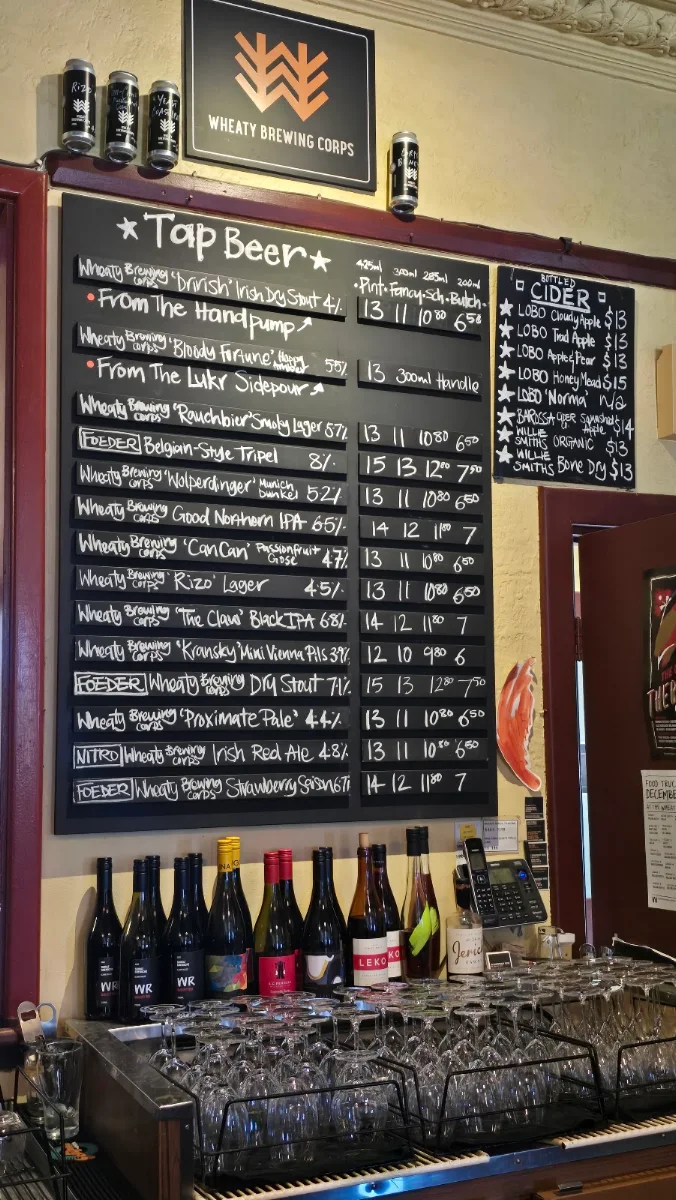 WHEATY BREWING CORPS
RIZO
★ Tap Beer ★
425ml 300ml 285ml 200ml
·Pint·Fancy·Sch·Butch·
Wheaty Brewing Corps 'Drirish' Irish Dry Stout 4% 13 11 10⁸⁰ 6⁵⁰
• From The Handpump
Wheaty Brewing Corps 'Bloody Fortune' 5.5% 13 300ml Handle
• From The Lukr Sidepour
Wheaty Brewing Corps 'Rauchbier' Smoky Lager 5.7% 13 11 10⁸⁰ 6⁵⁰
FOEDER Belgian-Style Tripel 8% 15 13 12⁰⁰ 7⁵⁰
Wheaty Brewing Corps 'Wolperdinger' Munich Dunkel 5.2% 13 11 10⁸⁰ 6⁵⁰
Wheaty Brewing Corps Good Northern IPA 6.5% 14 12 11⁸⁰ 7
Wheaty Brewing Corps 'CanCan' Passionfruit Gose 4.7% 13 11 10⁸⁰ 6⁵⁰
Wheaty Brewing Corps 'Rizo' Lager 4.5% 13 11 10⁸⁰ 6⁵⁰
Wheaty Brewing Corps 'The Claw' Black IPA 6.8% 14 12 11⁸⁰ 7
Wheaty Brewing Corps 'Kransky' Mini Vienna Pils 3.9% 12 10 9⁸⁰ 6
FOEDER Wheaty Brewing Corps Dry Stout 7.1% 15 13 12⁸⁰ 7⁵⁰
Wheaty Brewing Corps 'Proximate Pale' 4.4% 13 11 10⁸⁰ 6⁵⁰
NITRO Wheaty Brewing Corps Irish Red Ale 4.8% 13 11 10⁸⁰ 6⁵⁰
FOEDER Wheaty Brewing Corps Strawberry Saison 6.7% 14 12 11⁸⁰ 7
BOTTLED
CIDER
★ LOBO Cloudy Apple $13
★ LOBO Trad Apple $13
★ LOBO Apple & Pear $13
★ LOBO Honey Mead $15
★ LOBO 'Norma' n/a
★ BAROSSA CIDER Squashed Apple $14
★ WILLIE SMITHS ORGANIC $13
★ WILLIE SMITHS Bone Dry $13
FOOD TRUCK
DECEMBE
WR
WR
WR
LEKO
KO
Jeric